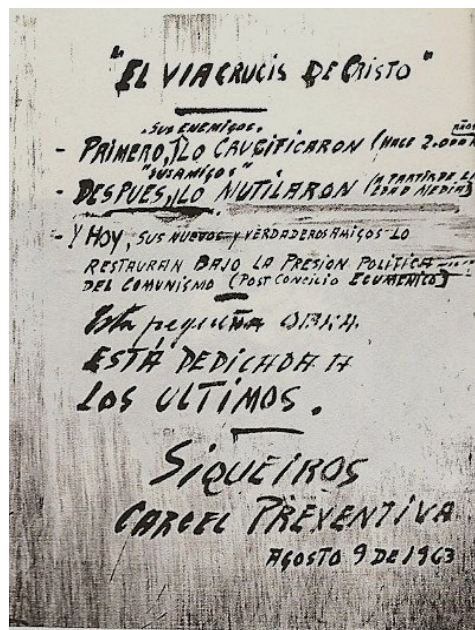 "EL VIACRUCIS DE CRISTO"
"SUS ENEMIGOS"
AÑOS
- PRIMERO, LO CRUCIFICARON (HACE 2.000
"SUS AMIGOS"
- DESPUES, LO MUTILARON (A PARTIR DE
EDAD MEDIA)
- Y HOY, SUS NUEVOS Y VERDADEROS AMIGOS LO
RESTAURAN BAJO LA PRESION POLITICA
DEL COMUNISMO (POST CONCILIO ECUMENICO)
Esta pequeña OBRA
ESTÁ DEDICADA A
LOS ULTIMOS.
SIQUEIROS
CARCEL PREVENTIVA
AGOSTO 9 DE 1963